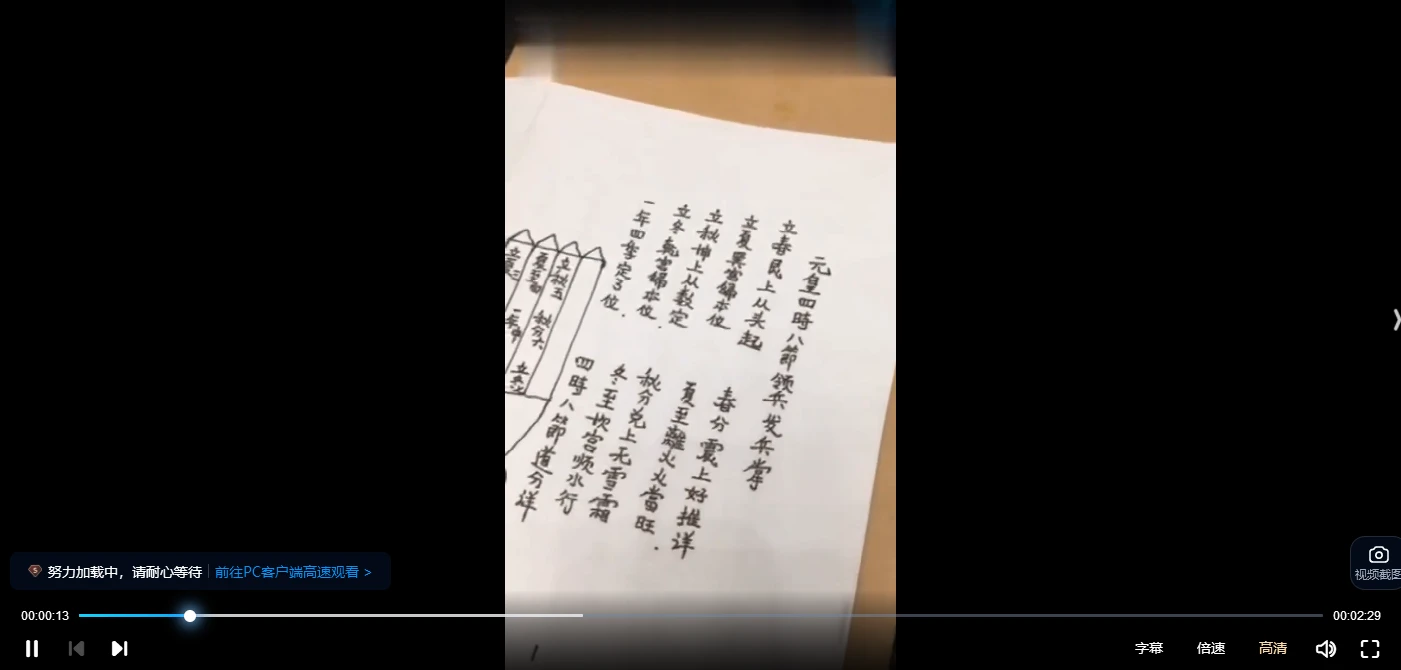 元皇四時八節领兵发兵掌
立春艮上从头起
春分震上好推详
立夏巽宫歸本位
夏至離火火當旺.
立秋坤上从数定
秋分兑上无雪霜
立冬乾宫歸本位.
冬至坎宫顺水行
一年四季定3位.
四時八節道分详
立秋五
秋分六
立冬七
夏至四
立夏三
一年中
1
努力加载中，请耐心等待
前往PC客户端高速观看 >
视频截图
00:00:13
00:02:29
字幕
倍速
高清